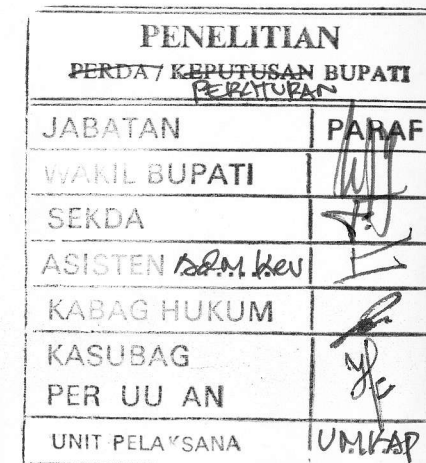 PENELITIAN
PERDA / KEPUTUSAN BUPATI
PERATURAN
JABATAN PARAF
WAKIL BUPATI
SEKDA
ASISTEN ADM. KEU
KABAG HUKUM
KASUBAG
PER UU AN
UNIT PELAKSANA UM.KAP